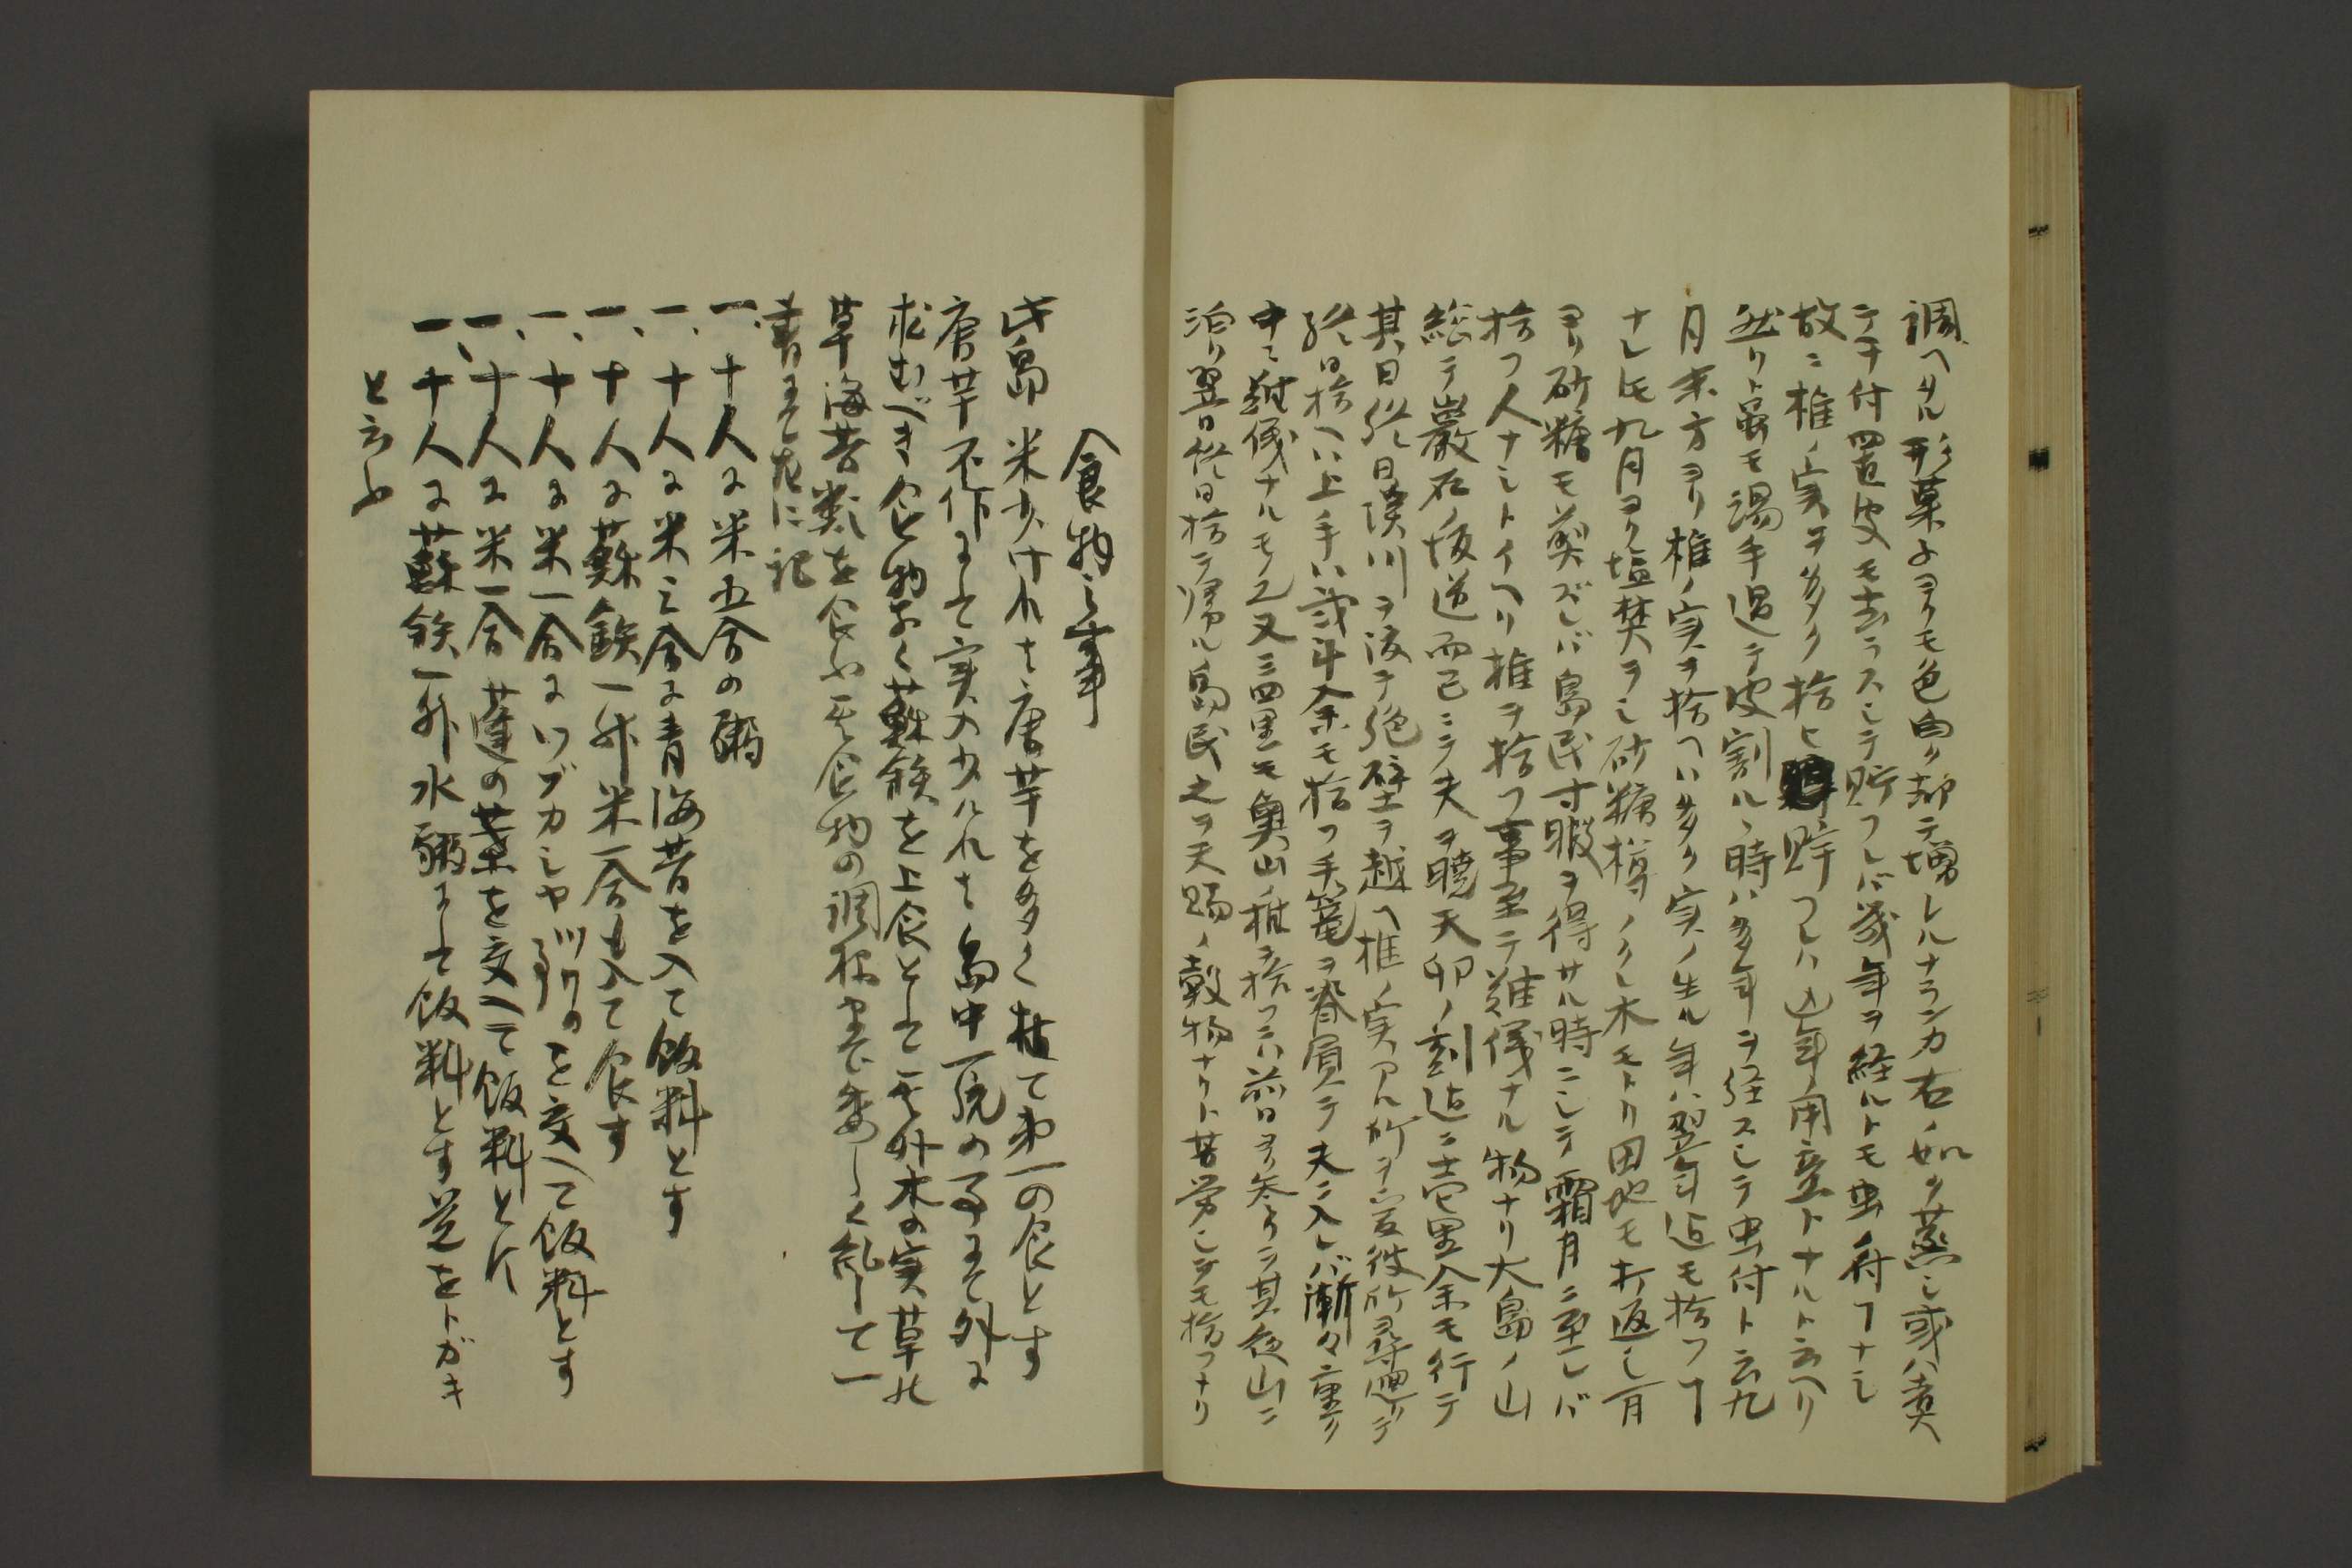 調ヘタル形菓子ヨリモ色白ク却テ増レルナランカ右ノ如ク蒸シ或ハ煮
テ干付置皮モ去ラスシテ貯フレバ幾年ヲ経ルトモ虫ノ付ヿナシ
故ニ椎ノ実ヲ多ク拾ヒ貯フレハ凶年ノ用意トナルト云ヘリ
然リト虽モ湯手過テ皮割ルヽ時ハ多年ヲ経スシテ虫付ト云九
月末方ヨリ椎ノ実ヲ拾ヘハ多ク実ノ生ル年ハ翌年迄モ拾フヿ
ナレ𪜈九月ヨリ塩焚ヲシ砂糖樽ノクレ木モトリ田地モ打返シ一ト月
ヨリ砂糖モ煎ズレバ島民寸暇ヲ得サル時ニシテ霜月ニ至レバ
拾フ人ナシトイヘリ椎ヲ拾フ事至テ難儀ナル物ナリ大島ノ山
総テ巌石ノ坂道而已ニテ夫ヲ暁天卯ノ刻迄ニ壱里余モ行テ
其日終日渓川ヲ渡テ絶壁ヲ越ヘ椎ノ実アル所ヲ爰彼所ヲ尋廻リテ
終日拾ヘハ上手ハ弐斗余モ拾フ手籠ヲ脊負テ夫ニ入レバ漸々重リ
中ニ難儀ナルモノ又三四里モ奥山ノ椎ヲ拾フニハ前日ヨリ参リテ其夜山ニ
泊リ翌日終日拾テ帰ル島民之ヲ天賜ノ穀物ナリト苦労シテモ拾フナリ
食物之事
此島米少けれは唐芋を多く植て第一の食とす
唐芋不作にして実入少ければ島中一統の事にて外に
求むべき食物なく蘇鉄を上食として其外木の実草の
草海苔類を食ふ其食物の調様まで委しく糺して一
書にて左に記
一、十人に米五合の粥
一、十人に米三合に青海苔を入て飯料とす
一、十人に蘇鉄一升米一合も入て食す
一、十人に米一合にツブカシヤ ツワのを交へて飯料とす
一、十人に米一合蓬の葉を交へて飯料とす
一、十人に蘇鉄一升水粥にして飯料とす是をトガキ
と云ふ